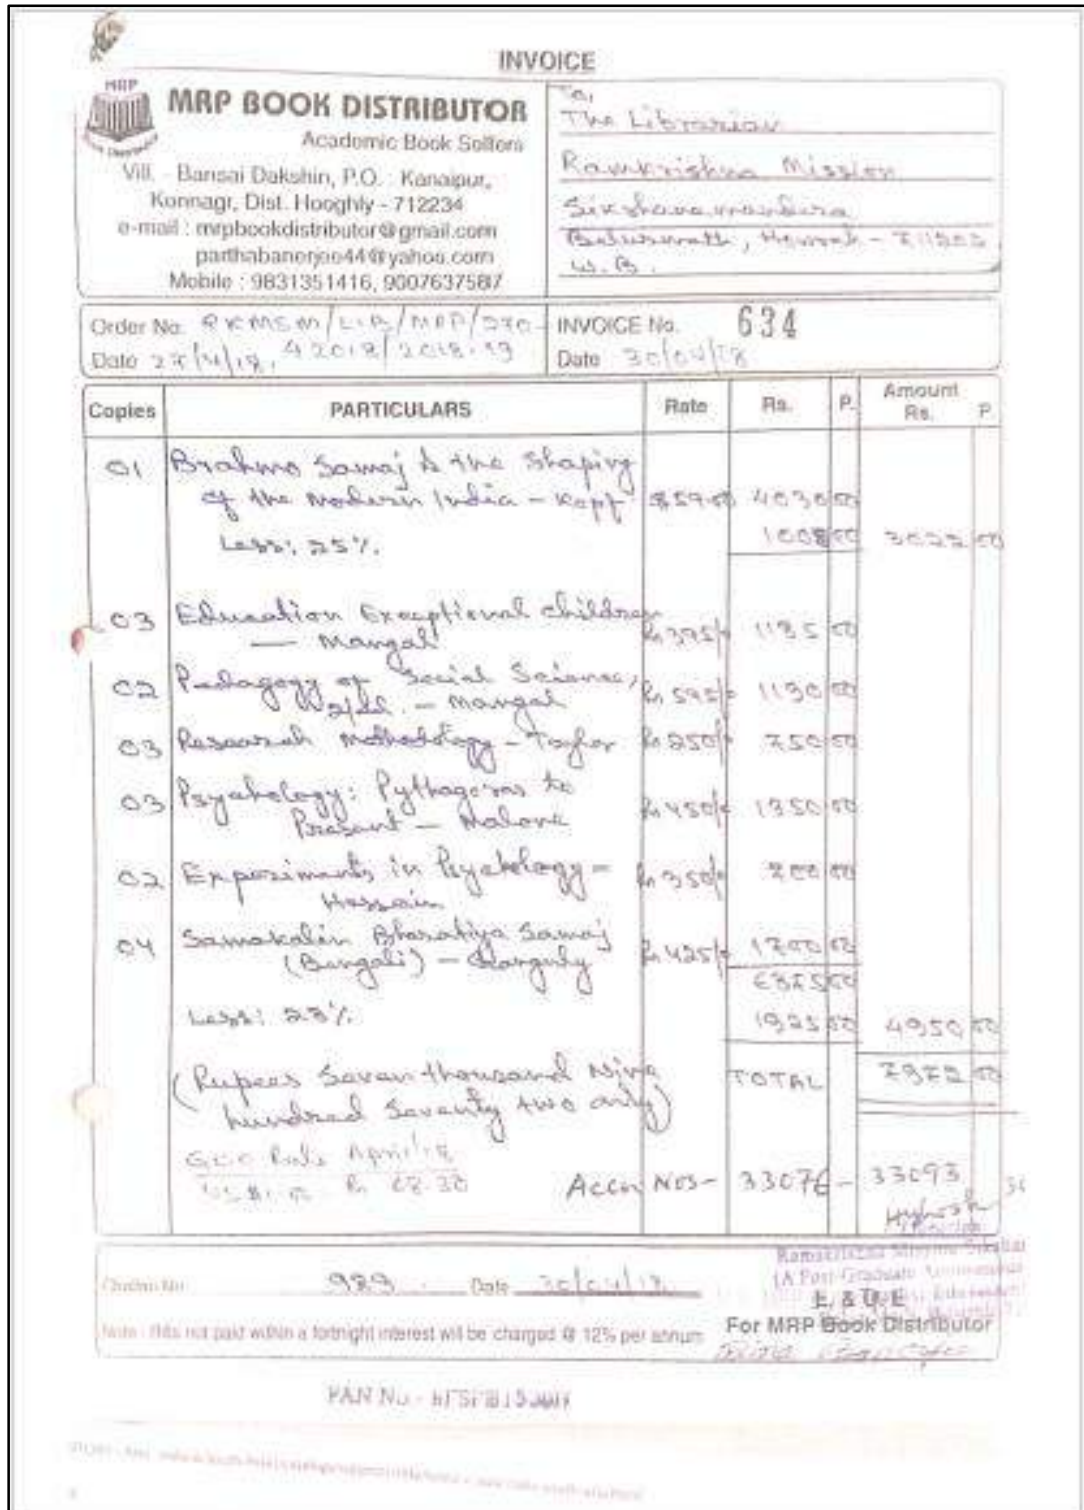 INVOICE
MRP
MRP BOOK DISTRIBUTOR
Academic Book Sellers
Vill. - Bansai Dakshin, P.O. : Kanaipur,
Konnagr, Dist. Hooghly - 712234
e-mail : mrpbookdistributor@gmail.com
parthabanerjee44@yahoo.com
Mobile : 9831351416, 9007637587
To,
The Librarian
Ramkrishna Mission
Sikshanamandira
Belurmath, Howrah - 711202
W.B.
Order No. RKMSM/LIB/MRP/270-
Date 27/4/18, 42018/2018.19
INVOICE No. 634
Date 30/04/18
Copies PARTICULARS Rate Rs. P. Amount Rs. P.
01 Brahmo Samaj & the Shaping
of the Modern India - Kopf $59.00 4030 00
Less: 25% 1008 00 3022 00
03 Education Exceptional Children
— Mangal Rs 395/- 1185 00
02 Pedagogy of Social Science,
2/ed. - Mangal Rs 595/- 1190 00
03 Research Methodology - Taylor Rs 250/- 750 00
03 Psychology: Pythagoras to
Present - Malone Rs 450/- 1350 00
02 Experiments in Psychology -
Hossain Rs 350/- 700 00
04 Samakalin Bharatiya Samaj
(Bengali) - Ganguly Rs 425/- 1700 00
6875 00
Less: 28% 1925 00 4950 00
(Rupees Seven thousand Nine
hundred Seventy two only) TOTAL 7972 00
GOC Rate April'18
US $1.00 Rs 68.30
Accn Nos- 33076 - 33093
Challan No. 989 Date 30/04/18
E. & O.E
Note : Bills not paid within a fortnight interest will be charged @ 12% per annum
For MRP Book Distributor
PAN No -